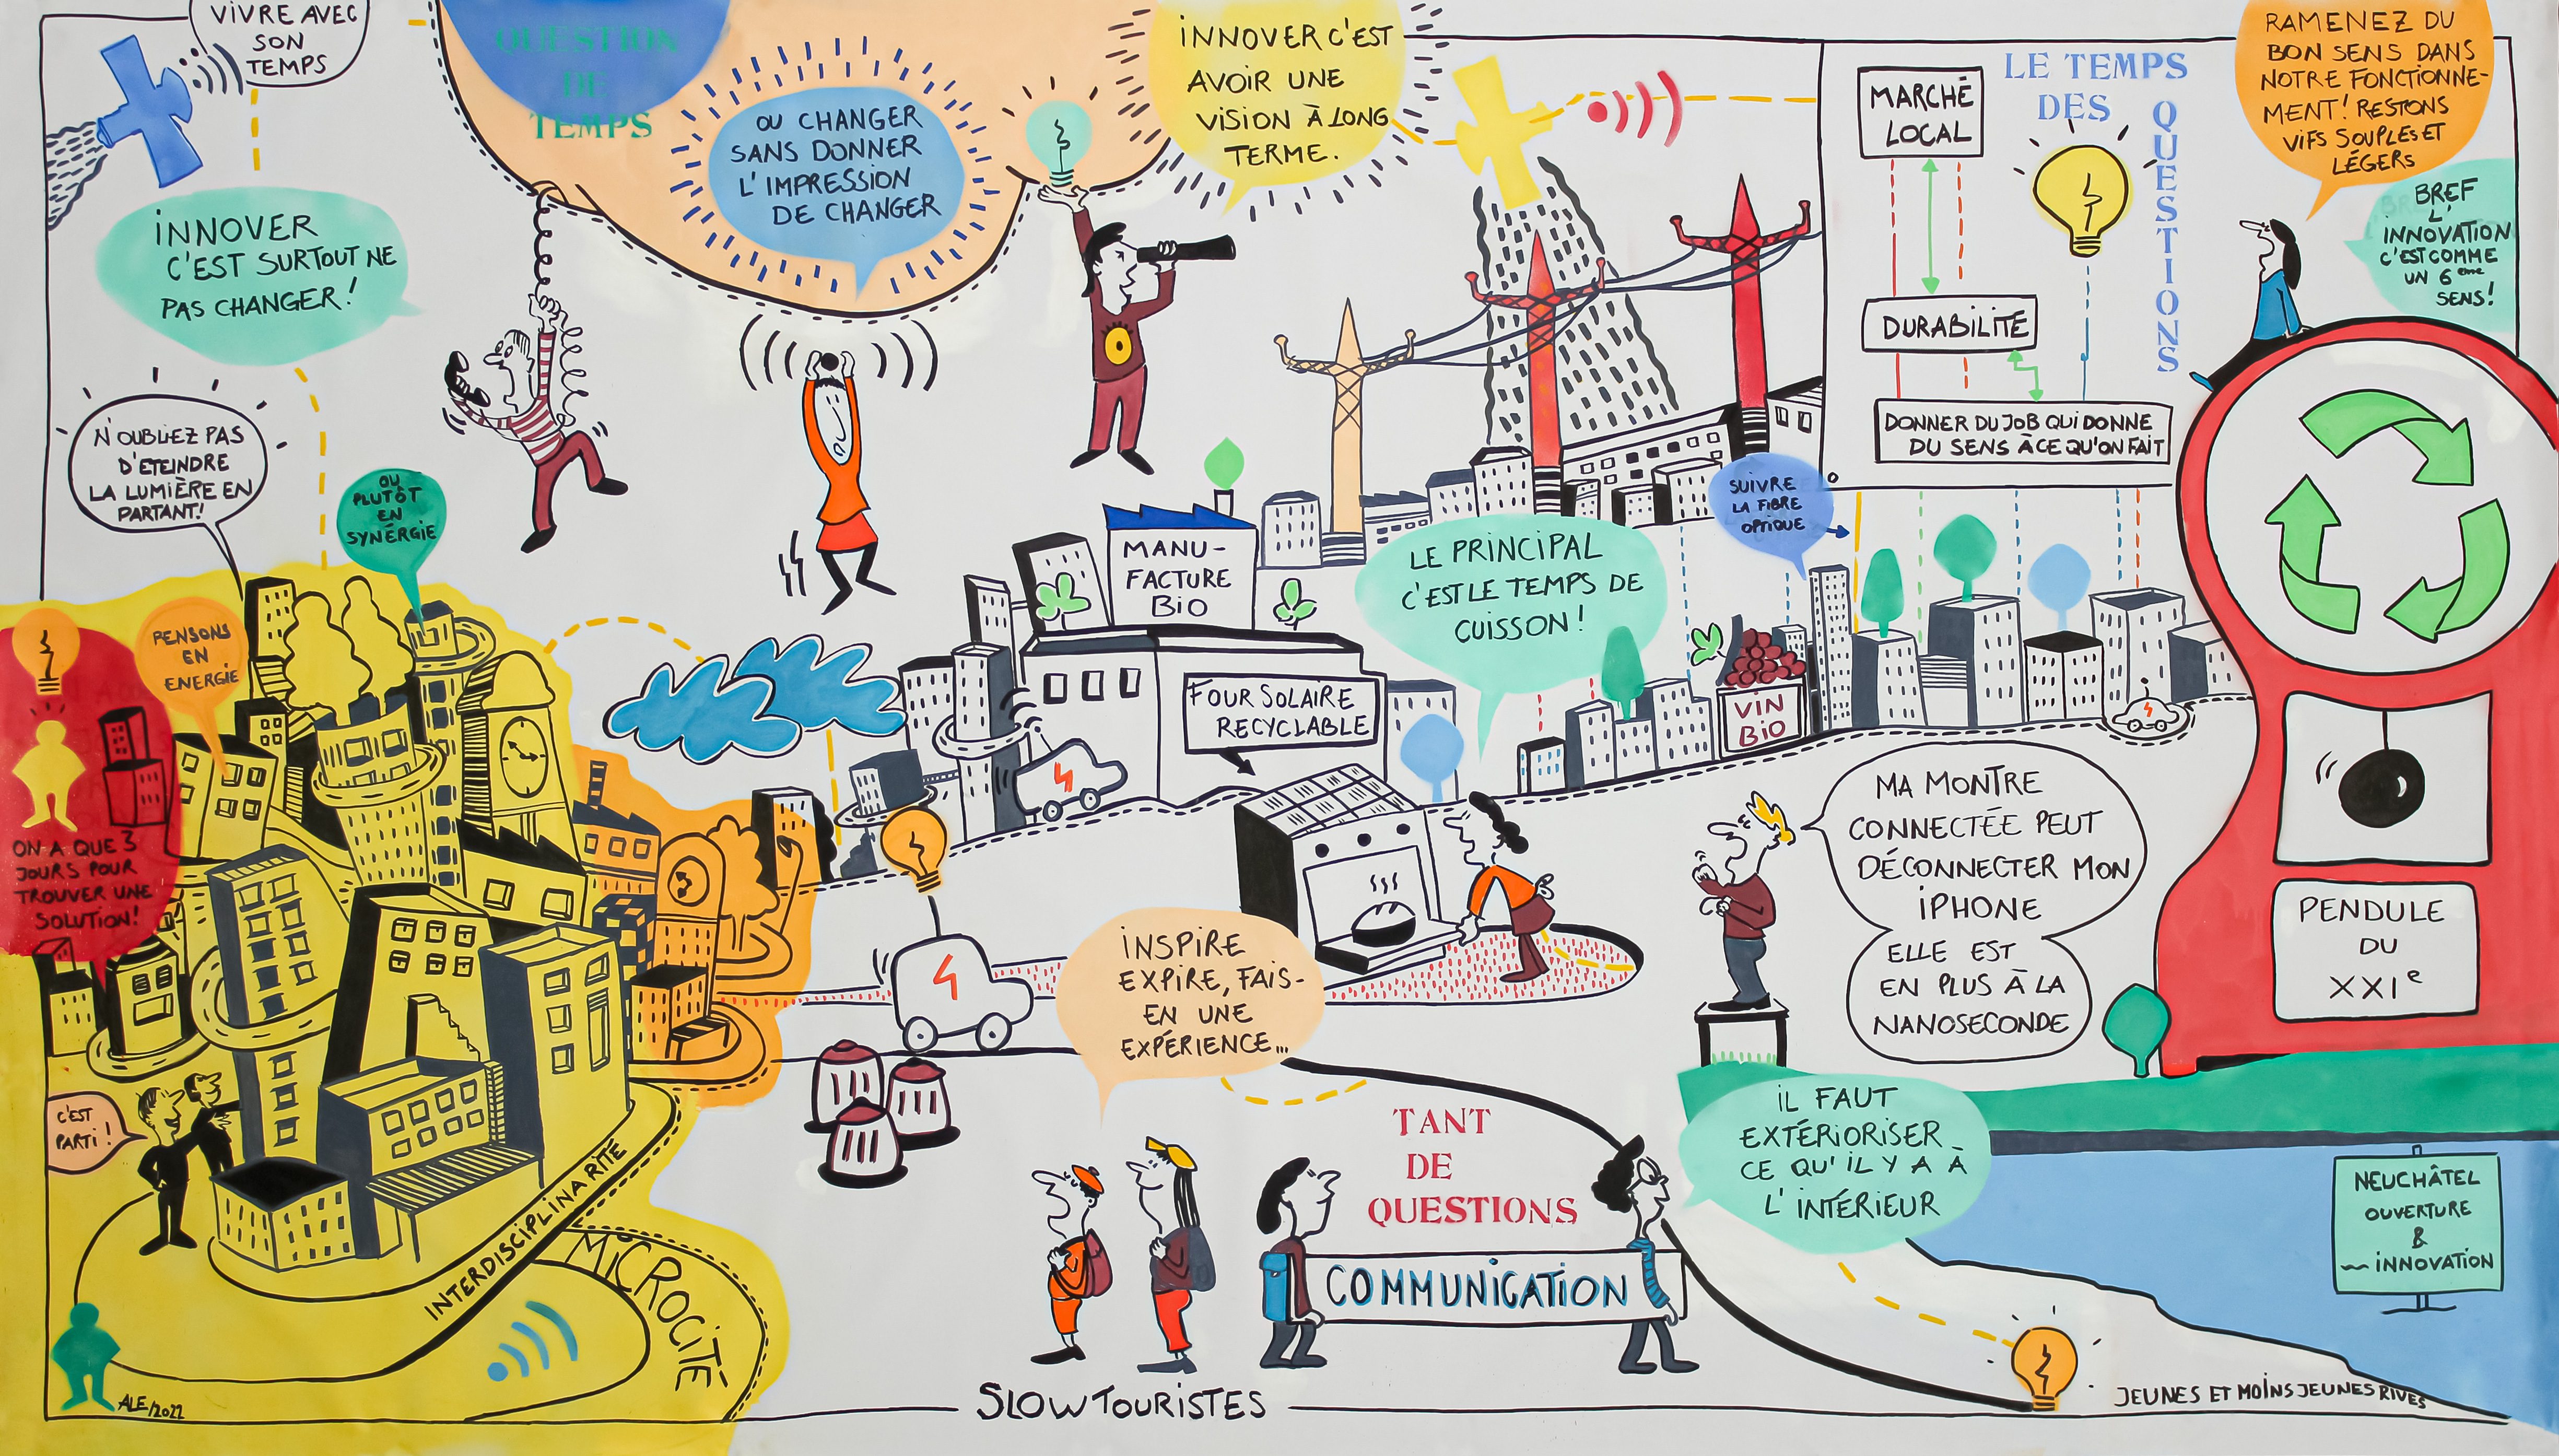 VIVRE AVEC
SON
TEMPS
QUESTION
DE
TEMPS
OU CHANGER
SANS DONNER
L'IMPRESSION
DE CHANGER
INNOVER C'EST
AVOIR UNE
VISION À LONG
TERME.
MARCHÉ
LOCAL
LE TEMPS
DES
QUESTIONS
DURABILITÉ
DONNER DU JOB QUI DONNE
DU SENS À CE QU'ON FAIT
RAMENEZ DU
BON SENS DANS
NOTRE FONCTIONNE-
MENT! RESTONS
VIFS SOUPLES ET
LÉGERS
BREF
L'
INNOVATION
C'EST COMME
UN 6eme
SENS!
INNOVER
C'EST SURTOUT NE
PAS CHANGER!
N'OUBLIEZ PAS
D'ETEINDRE
LA LUMIÈRE EN
PARTANT!
OU
PLUTÔT
EN
SYNÉRGIE
PENSONS
EN
ENERGIE
ON A QUE 3
JOURS POUR
TROUVER UNE
SOLUTION!
C'EST
PARTI!
INTERDISCIPLINARITÉ
MICROCITÉ
ALE/2022
MANU-
FACTURE
BIO
FOUR SOLAIRE
RECYCLABLE
LE PRINCIPAL
C'EST LE TEMPS DE
CUISSON!
SUIVRE
LA FIBRE
OPTIQUE
VIN
BIO
MA MONTRE
CONNECTÉE PEUT
DÉCONNECTER MON
IPHONE
ELLE EST
EN PLUS À LA
NANOSECONDE
PENDULE
DU
XXIe
INSPIRE
EXPIRE, FAIS-
EN UNE
EXPÉRIENCE...
TANT
DE
QUESTIONS
COMMUNICATION
IL FAUT
EXTÉRIORISER
CE QU'IL Y A À
L'INTÉRIEUR
NEUCHÂTEL
OUVERTURE
&
INNOVATION
SLOW TOURISTES
JEUNES ET MOINS JEUNES RIVES